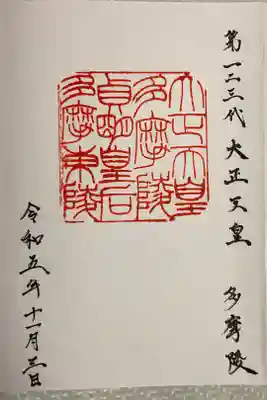 第一二三代 大正天皇 多摩陵
大正天皇
多摩陵
貞明皇后
多摩東陵
令和五年十一月三日